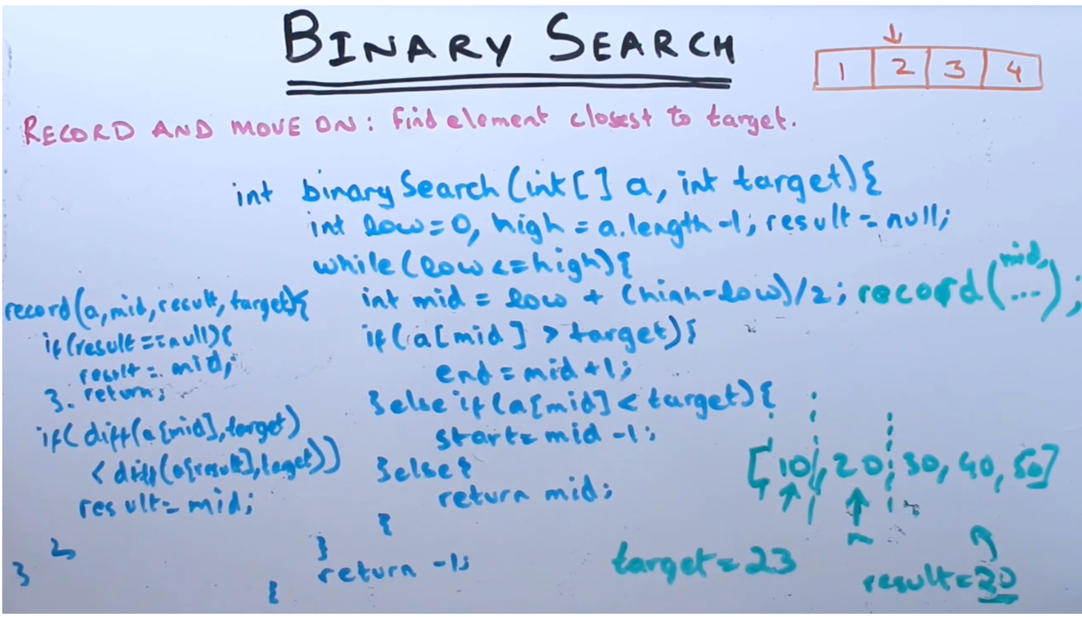 BINARY SEARCH
1 2 3 4
RECORD AND MOVE ON: Find element closest to target.
int binarySearch(int[] a, int target){
int low=0, high = a.length-1; result = null;
while(low<=high){
int mid = low + (high-low)/2; record(mid, ...);
if(a[mid] > target){
end = mid+1;
}else if(a[mid] < target){
start= mid -1;
}else{
return mid;
{
}
return -1;
{
record(a,mid,result,target){
if(result==null){
result = mid;
}. return;
if( diff(a[mid],target)
< diff(a[result],taget))
result= mid;
}
[10, 20, 30, 40, 50]
target=23
result=20